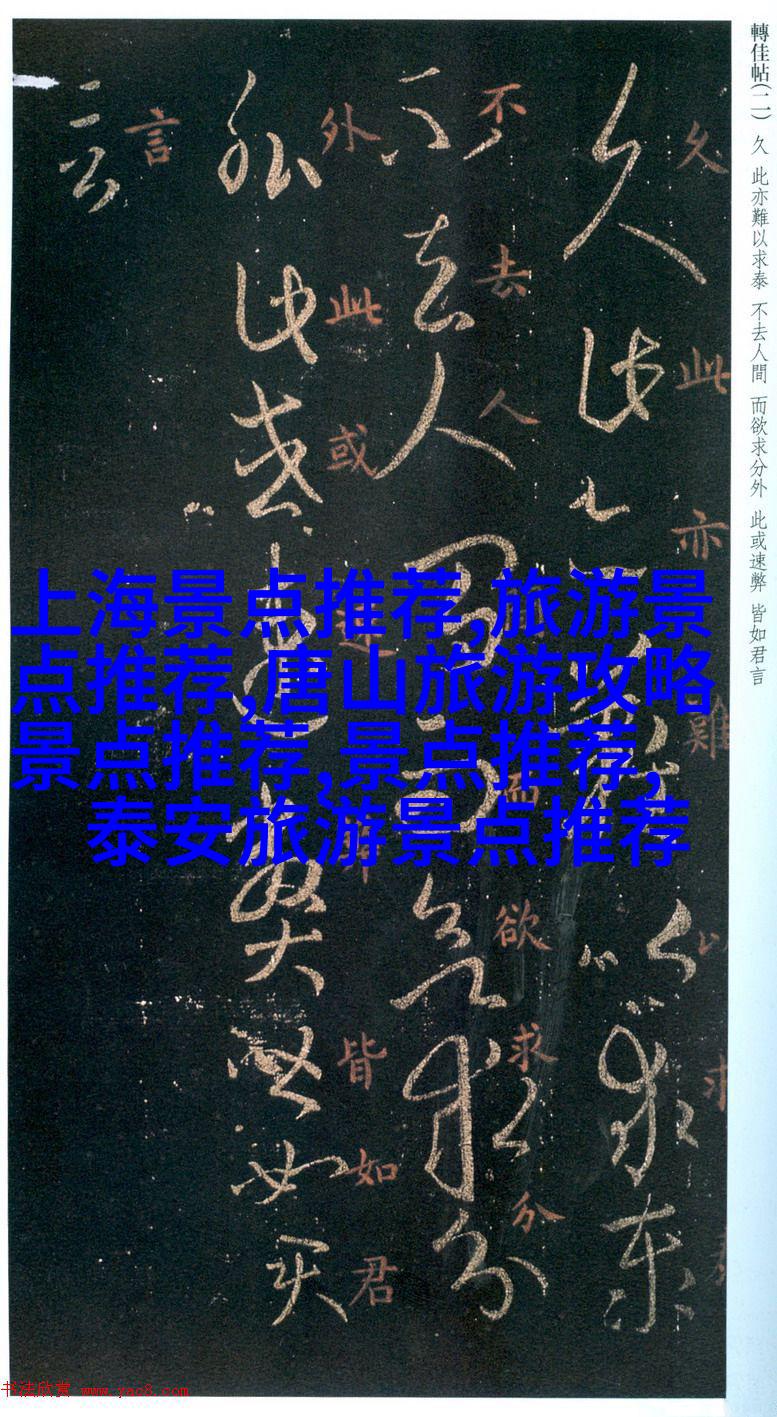 轉佳帖(二) 久 此亦難以求泰 不去人間 而欲求分外 此或速弊 皆如君言
久此亦難以求泰
久此亦難以求
不去人間而欲求分
不去人而欲求分
外此或速弊皆如君
外此或速弊皆如君
言
言
上海景点推荐,旅游景
点推荐,唐山旅游攻略
景点推荐,景点推荐,
泰安旅游景点推荐
书法欣赏 www.yac8.com